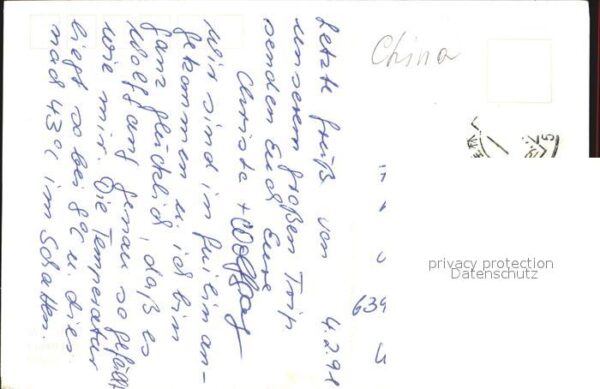 China
4.2.91
Letzte Grüß von
unserem großen Trip
senden Euch Eure
Christa + Wolfgang
Wir sind in Guilin an-
gekommen u. ich bin
ganz glücklich, daß es
Wolfgang genau so gefällt
wie mir. Die Temperatur
liegt so bei 8°C u dies
im Schatten.
639
privacy protection
Datenschutz